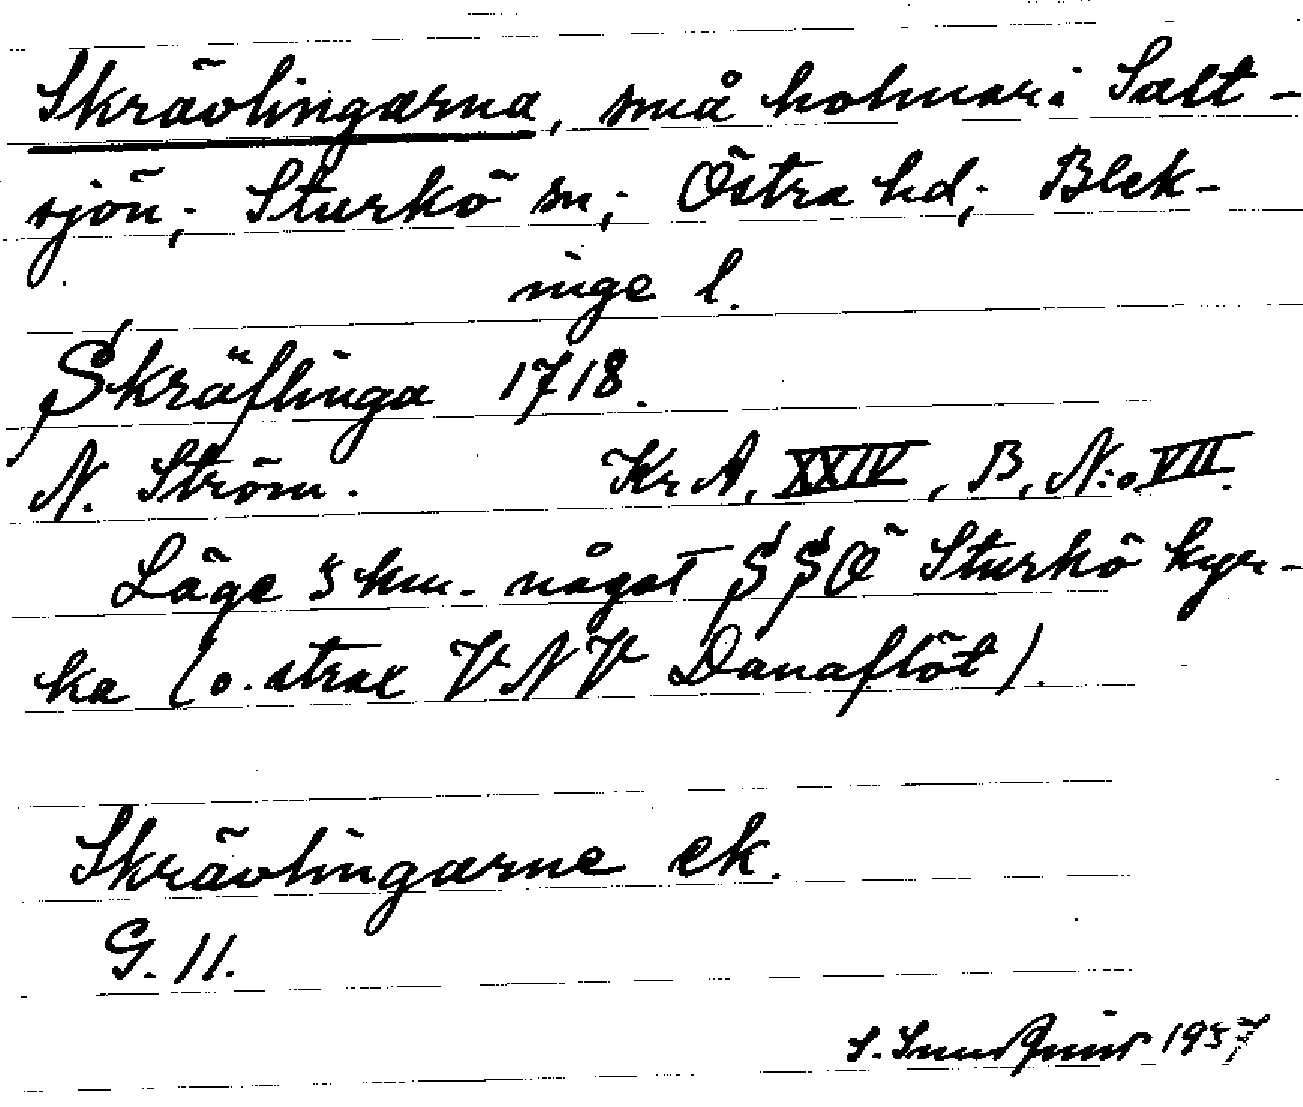 Skrävlingarna, små holmar i Salt-
sjön; Sturkö sn; Östra hd; Blek-
inge l.
Skräflinga 1718.
N. Ström. Kr A, XXIV, B, N:o VII.
Läge 5 km. något SSÖ Sturkö kyr-
ka (o. strax VNV Danaflöt).
Skrävlingarne ek.
G. 11.
S. 1957